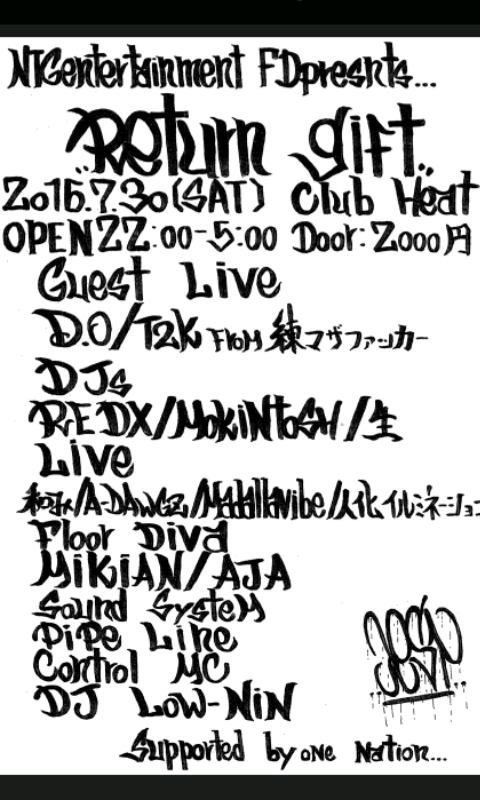 NTGentertainment FDpresnts...
..Return gift..
2016.7.30(SAT) Club Heat
OPEN22:00-5:00 Door:2000円
Guest Live
D.O/T2K From 練マザファッカー
DJs
REDX/MoKiNtoSH/生
Live
和み/A-DAWGZ/Madallavibe/人化イルミネーション
Floor Diva
MiKiAN/AJA
Sound SysteM
PiPe Line
Control MC
DJ Low-NiN
Supported by oNe Nation...